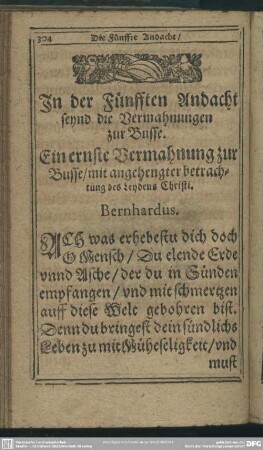 304 Die Fünffte Andacht /
In der Fünfften Andacht
seynd die Vermahnungen
zur Busse.
Ein ernste Vermahnung zur
Busse / mit angehengter betrach-
tung des leydens Christi.
Bernhardus.
ACh was erhebestu dich doch
O Mensch / Du elende Erde
vnnd Asche / der du in Sünden
empfangen / vnd mit schmertzen
auff diese Welt gebohren bist.
Denn du bringest dein sündlichs
Leben zu mit Müheseligkeit / vnd
must